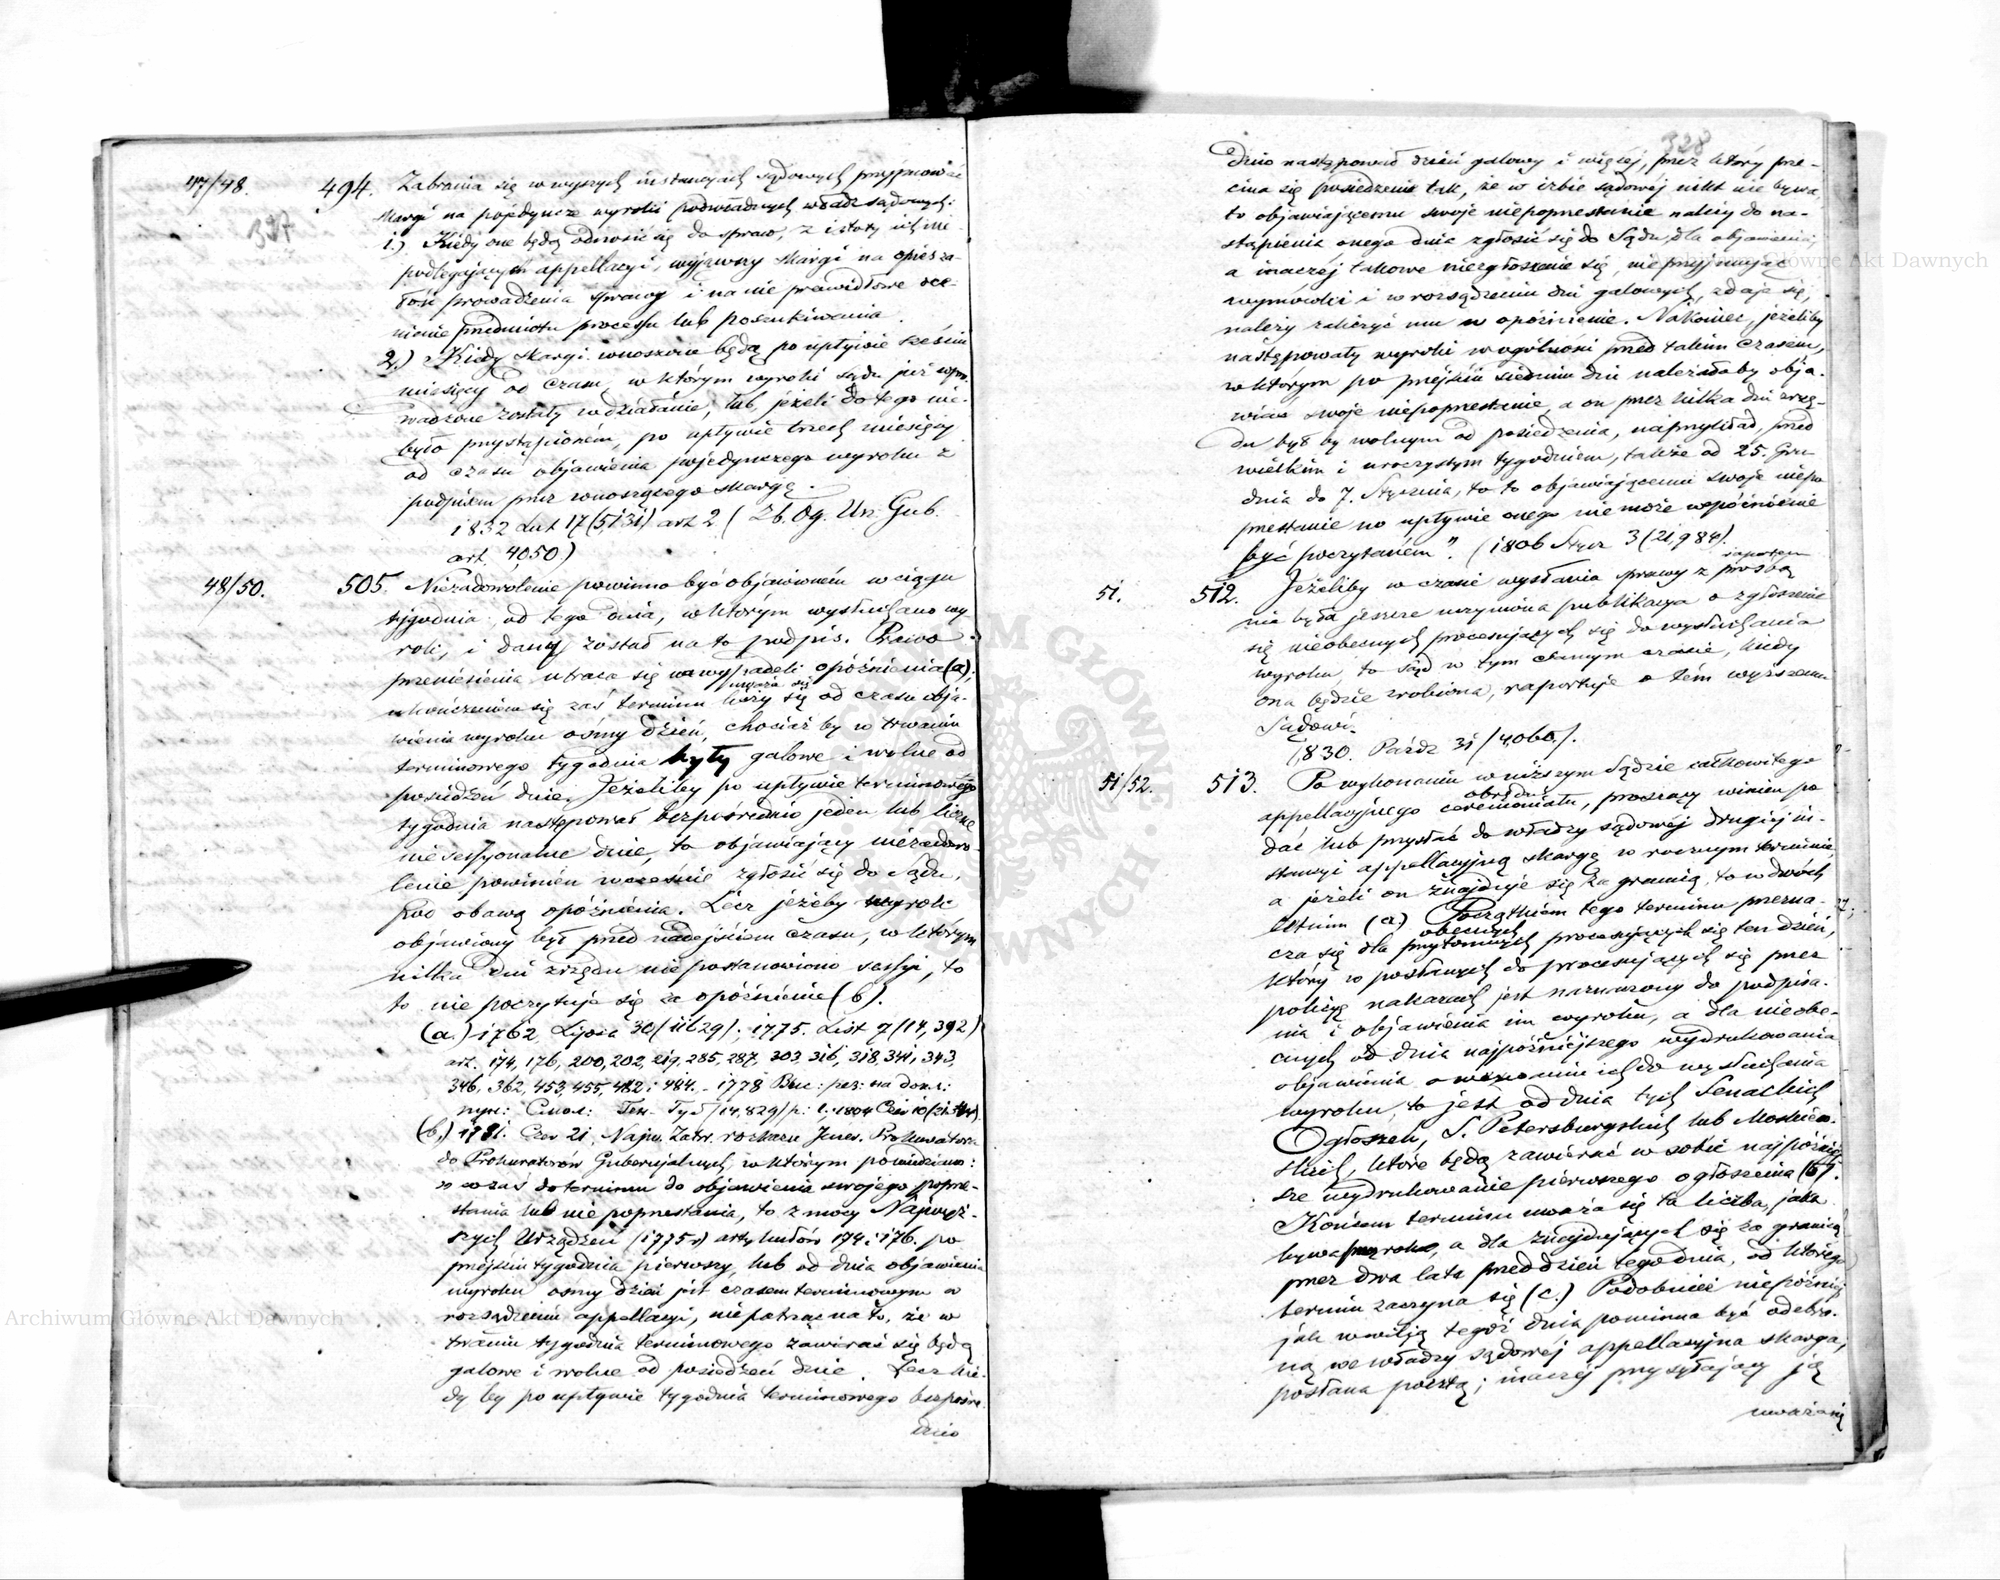 327
47/48. 494. Zabrania się w wyszych instancyach sądowych przyjmować
skargi na pojedyncze wyroki podwładnych władz sądowych:
1.) Kiedy one będą odnosić się do spraw, z istoty ich nie
podlegających appellacyi, wyjąwszy skargi na opiesza-
łość prowadzenia sprawy i na nie prawidłowe oce-
nienie przedmiotu processu lub poszukiwania.
2.) Kiedy skargi wnoszone będą po upływie sześciu
miesięcy od czasu, w którym wyroki sądu już wpro-
wadzone zostały w działanie, lub, jeżeli do tego nie-
było przystąpioném, po upływie trzech miesięcy
od czasu objawienia pojedynczego wyroku z
podpisem przez wnoszącego skargę.
1832 Lut 17 (5131) art 2 (Zb. Og. Urz. Gub.
art. 4050)
48/50. 505. Niezadowolenie powinno być objawioném w ciągu
tygodnia, od tego dnia, w którym wysłuchano wy-
rok, i dany został na to podpis. Prawo
przeniesienia utraca się w wypadku opóźnienia (a);
uważa się
ukończeniem się zaś terminu liczy się od czasu obja-
wienia wyroku ósmy dzień, chociażby w trwaniu
terminowego tygodnia były galowe i wolne od
posiedzeń dnie. Jeżeliby po upływie terminowego
tygodnia następował bezpośrednio jeden lub liczne
niesessyonalne dnie, to objawiający niezadowo-
lenie powinien wcześnie zgłosić się do Sądu,
pod obawą opóźnienia. Lecz jeżeby wyrok
objawiony był przed nadejściem czasu, w którym
kilka dni zrzędu nie postanowiono sessyi, to
to nie poczytuje się za opóźnienie (b).
(a.) 1762 Lipca 30 (11629); 1775. List 7 (14,392)
art. 174, 176, 200, 202, 219, 285, 287, 303, 316, 318, 341, 343,
346, 362, 453, 455, 482 i 484. 1778
(14,829) 1804 Czer 10
(b.) 1781. Czer 21. Najw. Zatw. rozkazu Jener. Prokuratora
do Prokuratorów Gubernijalnych, w którym powiedziano:
„co zaś do terminu do objawienia swojego poprze-
stania lub nie poprzestania, to z mocy Najwyż-
szych Urządzeń (1775 r) artykułów 174 i 176. po
przejściu tygodnia pierwszy, lub od dnia objawienia
wyroku ósmy dzień jest czasem terminowym o
rozsądzeniu appellacyi, nie patrząc na to, że w
trwaniu tygodnia terminowego zawierać się będą
galowe i wolne od posiedzeń dnie. Lecz kie-
dy by po upływie tygodnia terminowego bezpośre-
dnio
328
dnio następował dzień galowy i więcej, przez który prze-
cina się posiedzenie tak, że w izbie sądowéj nikt nie bywa,
to objawiającemu swoje niepoprzestanie należy do na-
stąpienia onego dnia zgłosić się do Sądu, dla objawienia,
a inaczéj takowe niezgłoszenie się, nie przyjmując
wymówki i w rozsądzeniu dni galowych, zdaje się,
należy zaliczyć mu w opóźnienie. Nakoniec, jeżeliby
następowały wyroki w ogólności przed takim czasem,
w którym po przejściu siedmiu dni należałoby obja-
wiać swoje niepoprzestanie, a on przez kilka dni zrzę-
du był by wolnym od posiedzenia, naprzykład, przed
wielkim i uroczystym tygodniem, także od 25. Gru-
dnia do 7. Stycznia, to to objawiającemu swoje niepo-
przestanie po upływie onego nie może w opóźnienie
być poczytaném". (1806 Stycz 3 (21,984).
raportem
51. 512. Jeżeliby w czasie wysłania sprawy z prośbą
nie była jeszcze uczyniona publikacya o zgłoszenie
się nieobecnych procesujących się do wysłuchania
wyroku, to sąd w tym samym czasie, kiedy
ona będzie zrobiona, raportuje o tém wyższemu
Sądowi.
1830. Paźdz 31 (4,060).
51/52. 513. Po wykonaniu w niższym Sądzie całkowitego
obrzędu
appellacyjnego ceremoniału, proszący winien po
dać lub przysłać do władzy sądowéj drugiej in-
stancyi appellacyjną skargę w rocznym terminie,
a jeżeli on znajduje się za granicą, to w dwóch
letnim (a) Początkiem tego terminu przezna-
obecnych
cza się dla przytomnych procesujących się ten dzień,
który w posłanych do procesujących się przez
policyę nakazach jest naznaczony do podpisa-
nia i objawienia im wyroku, a dla nieobe-
cnych od dnia najpóźniejszego wydrukowania
objawienia o wezwaniu ich do wysłuchania
wyroku, to jest od dnia tych Senackich
Ogłoszeń, S. Petersburgskich lub Moskiew-
skich, które będą zawierać w sobie najpóźniej-
sze wydrukowanie pierwszego ogłoszenia (b).
Końcem terminu uważa się ta liczba, jaka
bywa przez rok, a dla znajdujących się za granicą
przez dwa lata przed dzień tego dnia, od którego
termin zaczyna się (c.) Podobnież niepóźniej
jak w wilją tegóż dnia powinna być odebra-
ną we władzy sądowéj appellacyjna skarga,
posłana pocztą; inaczéj przysyłający ją
uważany
Archiwum Główne Akt Dawnych
Archiwum Główne Akt Dawnych